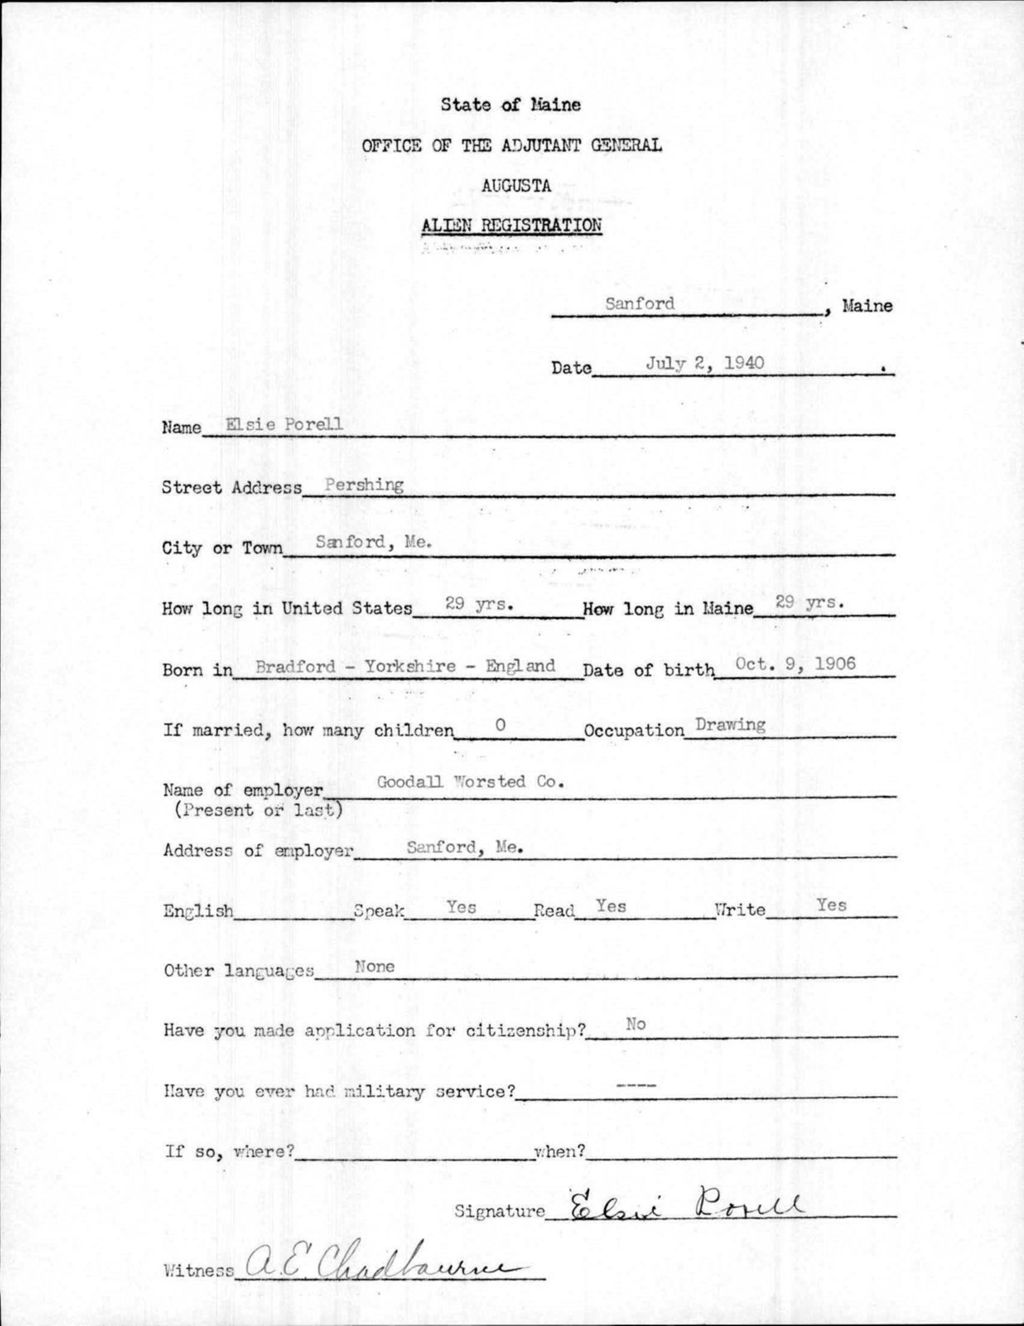 State of Maine
OFFICE OF THE ADJUTANT GENERAL
AUGUSTA
ALIEN REGISTRATION
Sanford, Maine
Date July 2, 1940.
Name Elsie Porell
Street Address Pershing
City or Town Sanford, Me.
How long in United States 29 yrs. How long in Maine 29 yrs.
Born in Bradford - Yorkshire - England Date of birth Oct. 9, 1906
If married, how many children 0 Occupation Drawing
Name of employer Goodall Worsted Co.
(Present or last)
Address of employer Sanford, Me.
English Speak Yes Read Yes Write Yes
Other languages None
Have you made application for citizenship? No
Have you ever had military service? ----
If so, where? when?
Signature Elsie Porell
Witness A.E. Chadbourne